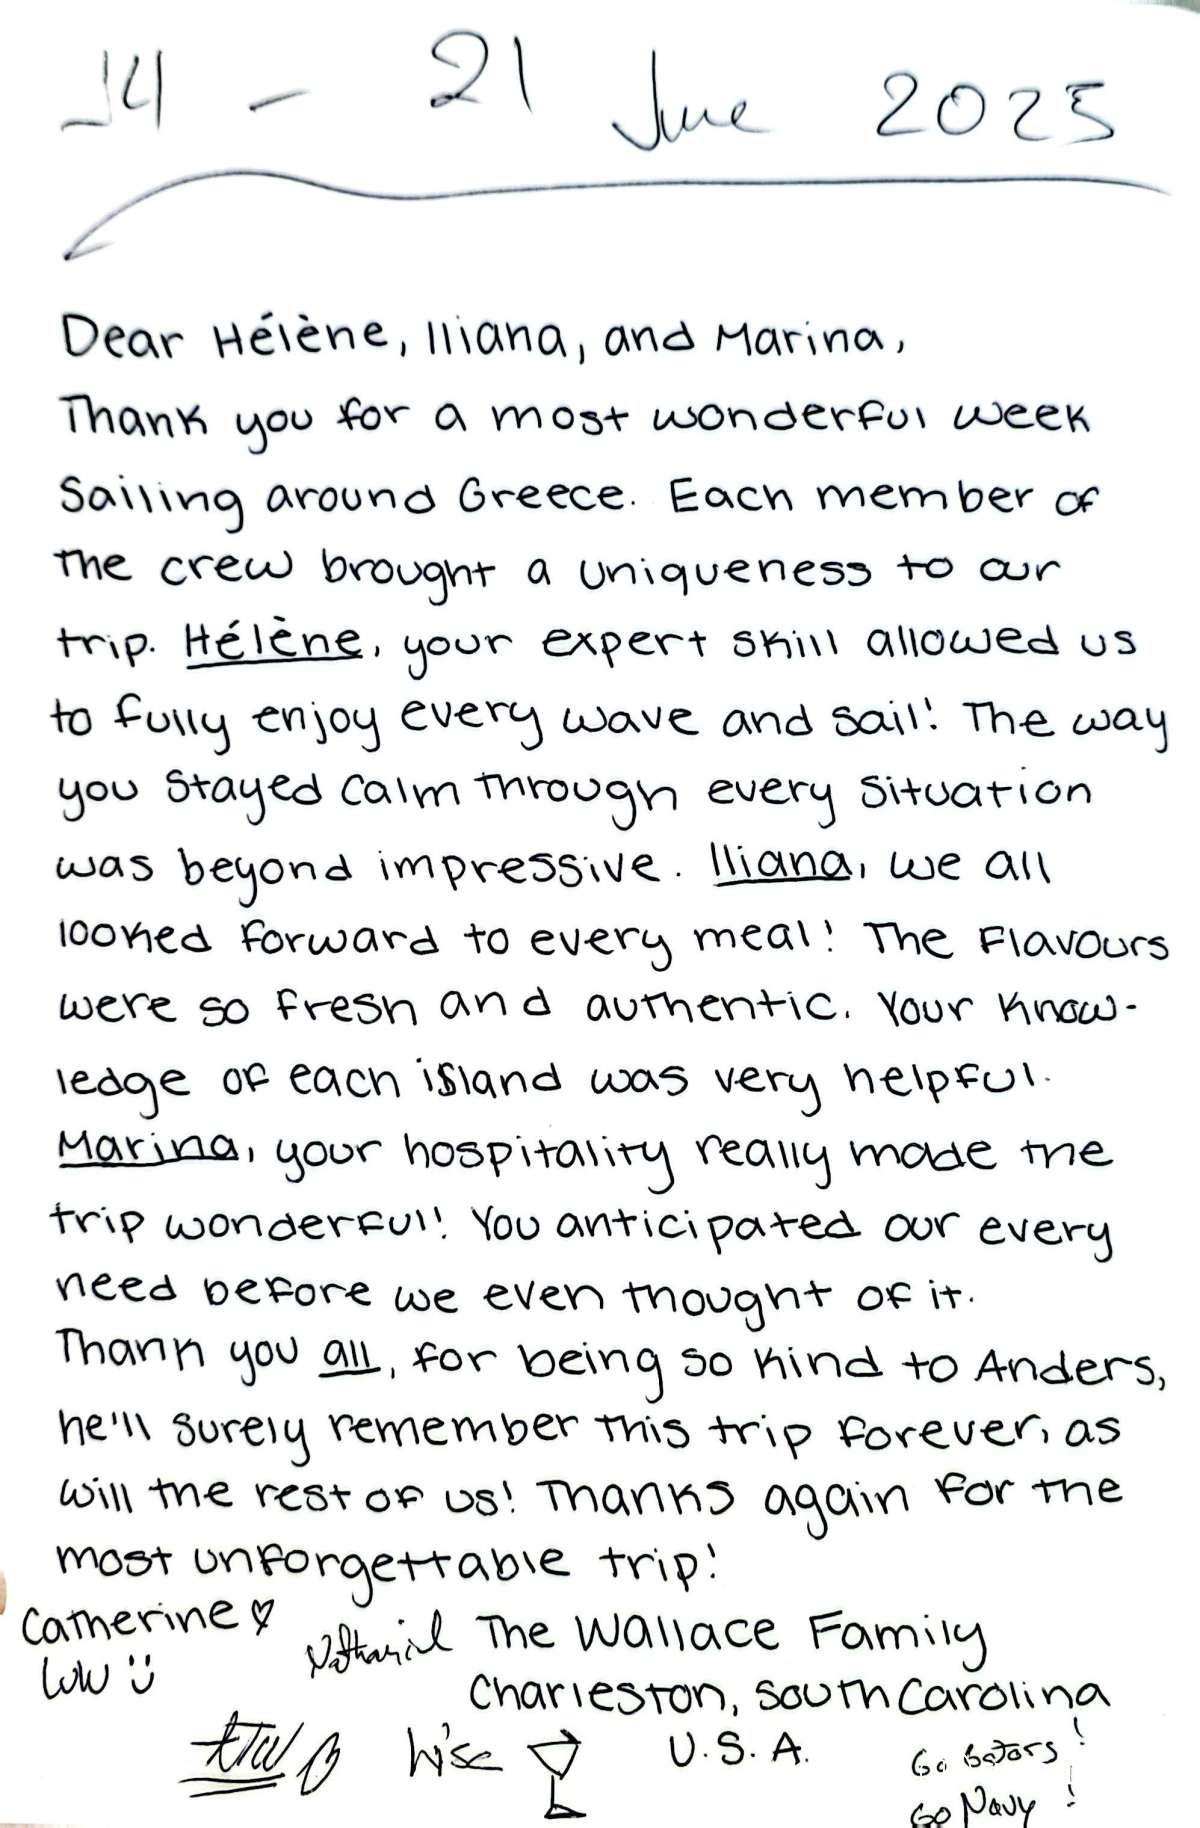 14 - 21 June 2025
Dear Hélène, Iliana, and Marina,
Thank you for a most wonderful week
Sailing around Greece. Each member of
the crew brought a uniqueness to our
trip. Hélène, your expert skill allowed us
to fully enjoy every wave and sail! The way
you stayed calm through every situation
was beyond impressive. Iliana, we all
looked forward to every meal! The flavours
were so fresh and authentic. Your know-
ledge of each island was very helpful.
Marina, your hospitality really made the
trip wonderful! You anticipated our every
need before we even thought of it.
Thank you all, for being so kind to Anders,
he'll surely remember this trip forever, as
will the rest of us! Thanks again for the
most unforgettable trip!
Catherine ♡
Lulu
Nathaniel
The Wallace Family
Charleston, South Carolina
U.S.A.
Go Gators!
Go Navy!